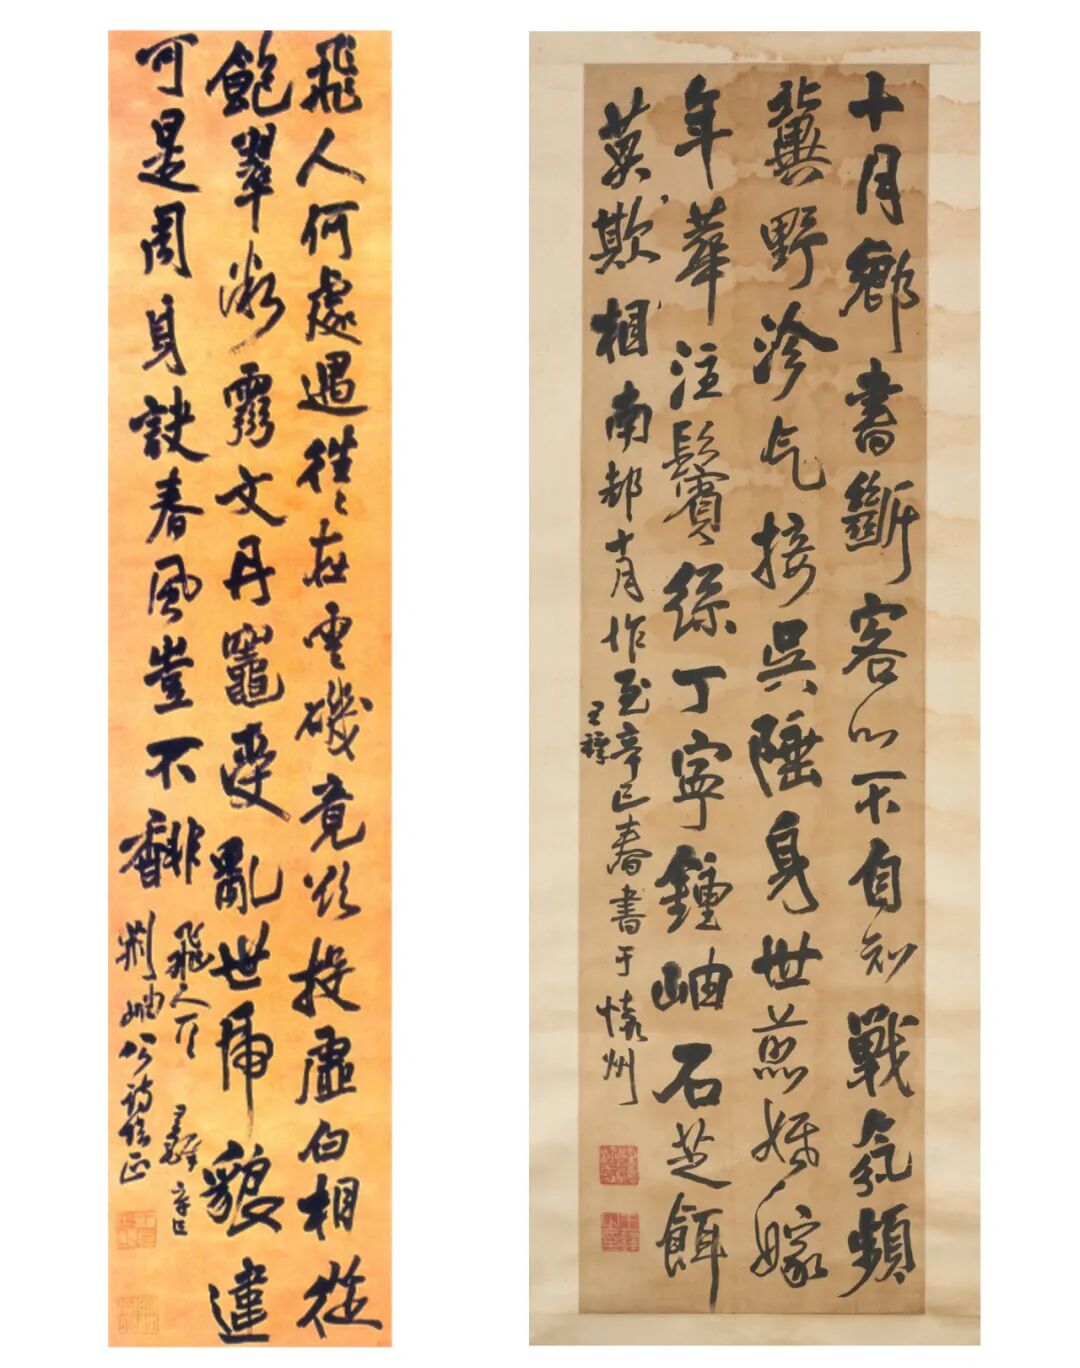 飛人何處遇徃〻在雲磯竟欲投虛白相從
飽翠微霧文丹竈變亂世貌違
可是周身訣春風豈不馡
飛人
荊岫公詩壇正
王鐸
辛巳
十月鄉書斷客心不自知戰氛頻
冀野沴气接吳陲身世煎婚嫁
年華注鬢絲丁寧鍾岫石芝餌
莫欺相
南都十月作至辛巳春書于懷州
王鐸